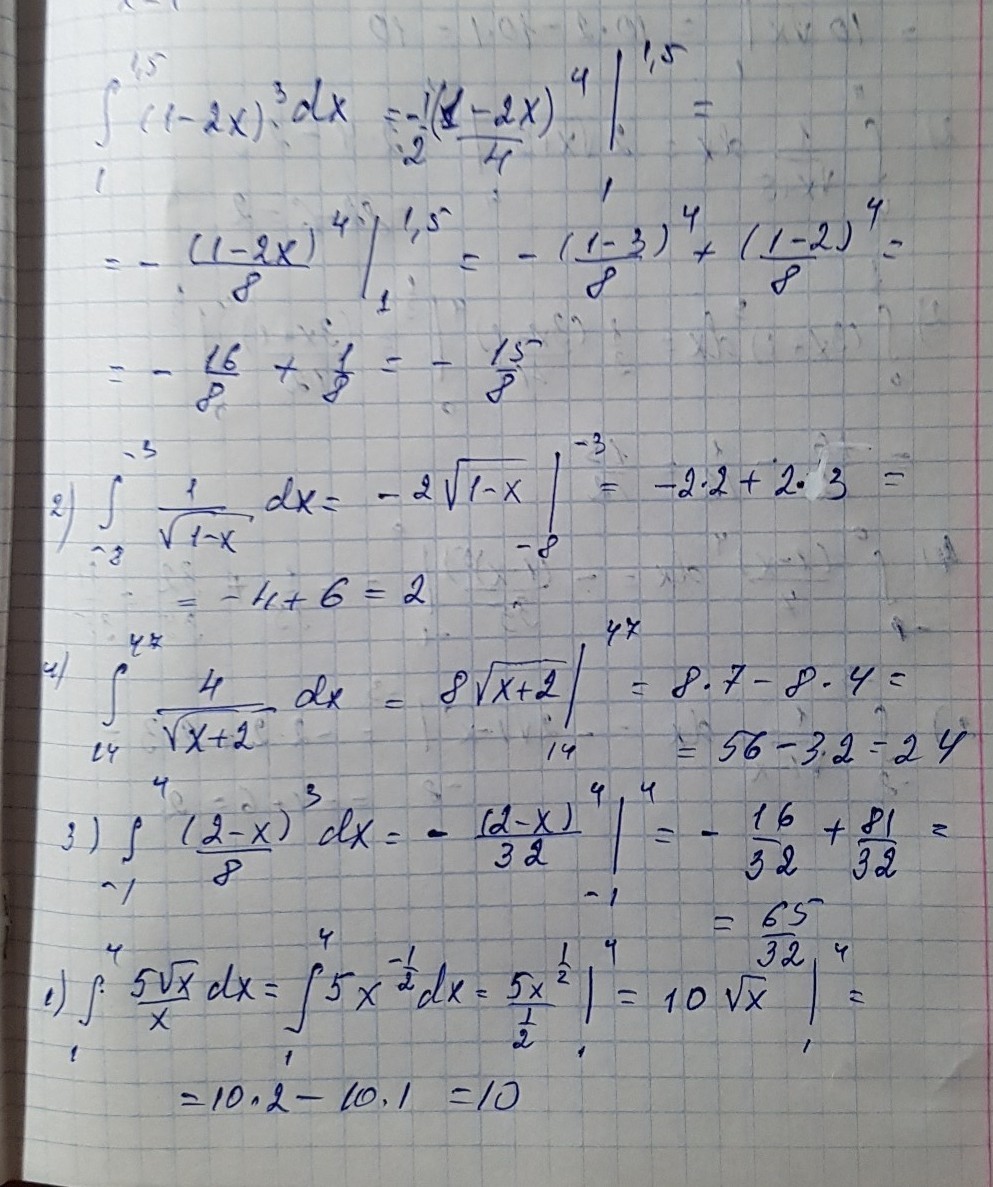 ∫₁^{1,5} (1-2x)³ dx = -1/2 (1-2x)⁴/4 |₁^{1,5} =
= - (1-2x)⁴/8 |₁^{1,5} = - (1-3)⁴/8 + (1-2)⁴/8 =
= - 16/8 + 1/8 = - 15/8
2) ∫₋₈^{-3} 1/√(1-x) dx = -2√(1-x) |₋₈^{-3} = -2·2 + 2·3 =
= -4 + 6 = 2
4) ∫₁₄^{47} 4/√(x+2) dx = 8√(x+2) |₁₄^{47} = 8·7 - 8·4 =
= 56 - 32 = 24
3) ∫₋₁^{4} (2-x)³/8 dx = - (2-x)⁴/32 |₋₁^{4} = - 16/32 + 81/32 =
= 65/32
1) ∫₁^{4} 5√x/x dx = ∫₁^{4} 5x^{-1/2} dx = 5x^{1/2}/(1/2) |₁^{4} = 10√x |₁^{4} =
= 10·2 - 10·1 = 10